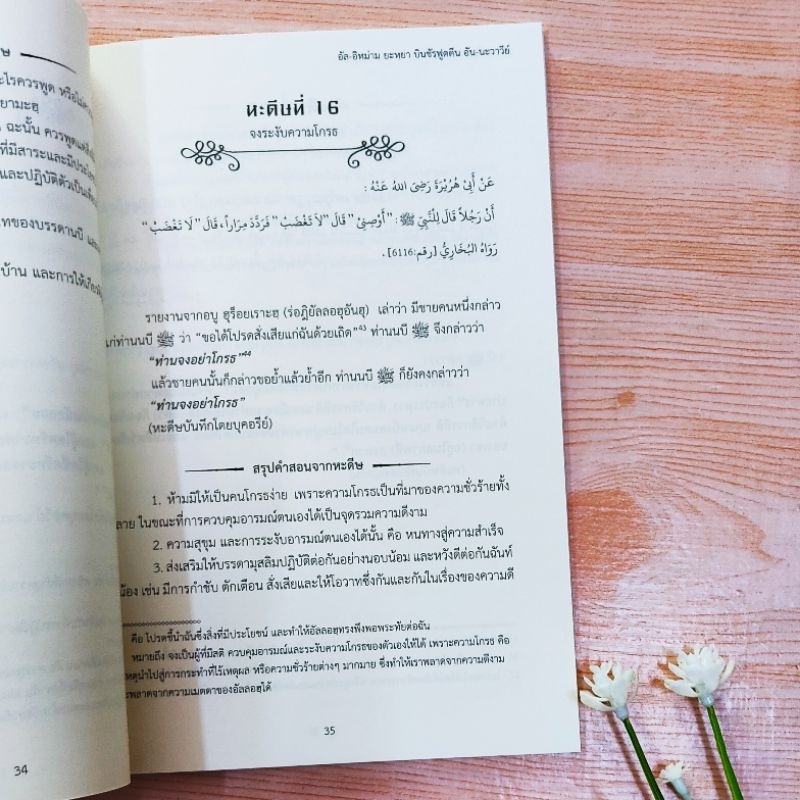 ษ
ะไรควรพูด หรือไม่ควร
ยามะฮฺ
ฉะนั้น ควรพูดแต่สิ่ง
ที่มีสาระและมีประโยช
และปฏิบัติตัวเป็นเพื่อ
ทของบรรดานบี แ
บ้าน และการให้เกีย
34
อัล-อิหม่าม ยะหยา บินชัรฟุดดีน อัน-นะวาวีย์
หะดีษที่ 16
จงระงับความโกรธ
عَنْ أَبِيْ هُرَيْرَةَ رَضِيَ اللهُ عَنْهُ :
أَنَّ رَجُلاً قَالَ لِلنَّبِيِّ ﷺ : "أَوْصِنِيْ" قَالَ "لَا تَغْضَبْ" فَرَدَّدَ مِرَاراً، قَالَ "لَا تَغْضَبْ"
رَوَاهُ البُخَارِيُّ [رقم:6116] .
รายงานจากอบู ฮุร็อยเราะฮฺ (ร่อฎิยัลลอฮุอันฮุ) เล่าว่า มีชายคนหนึ่งกล่าว
แก่ท่านนบี ﷺ ว่า “ขอได้โปรดสั่งเสียแก่ฉันด้วยเถิด”43 ท่านนบี ﷺ จึงกล่าวว่า
“ท่านจงอย่าโกรธ”44
แล้วชายคนนั้นก็กล่าวขอย้ำแล้วย้ำอีก ท่านนบี ﷺ ก็ยังคงกล่าวว่า
“ท่านจงอย่าโกรธ”
(หะดีษบันทึกโดยบุคอรีย์)
สรุปคำสอนจากหะดีษ
1. ห้ามมิให้เป็นคนโกรธง่าย เพราะความโกรธเป็นที่มาของความชั่วร้ายทั้ง
ลาย ในขณะที่การควบคุมอารมณ์ตนเองได้เป็นจุดรวมความดีงาม
2. ความสุขุม และการระงับอารมณ์ตนเองได้นั้น คือ หนทางสู่ความสำเร็จ
3. ส่งเสริมให้บรรดามุสลิมปฏิบัติต่อกันอย่างนอบน้อม และหวังดีต่อกันฉันท์
น้อง เช่น มีการกำชับ ตักเตือน สั่งเสียและให้โอวาทซึ่งกันและกันในเรื่องของความดี
คือ โปรดชี้นำฉันซึ่งสิ่งที่มีประโยชน์ และทำให้อัลลอฮฺทรงพึงพอพระทัยต่อฉัน
หมายถึง จงเป็นผู้ที่มีสติ ควบคุมอารมณ์และระงับความโกรธของตัวเองให้ได้ เพราะความโกรธ คือ
หตุนำไปสู่การกระทำที่ไร้เหตุผล หรือความชั่วร้ายต่างๆ มากมาย ซึ่งทำให้เราพลาดจากความดีงาม
ะพลาดจากความเมตตาของอัลลอฮฺได้
35